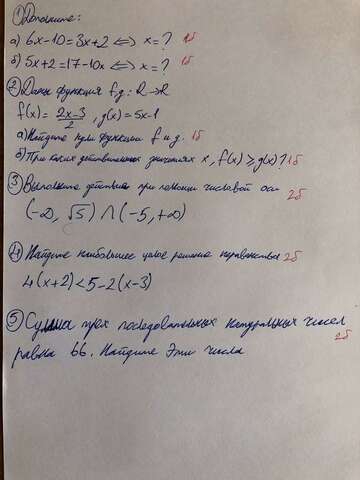 ① Дополните:
а) 6x-10=3x+2 ⇔ x=? 1б
б) 5x+2=17-10x ⇔ x=? 1б
② Даны функции f,g: R→R
f(x)= (2x-3)/2, g(x)=5x-1
а) Найдите нули функции f и g. 1б
б) При каких действительных значениях x, f(x)≥g(x)? 1б
③ Выполните действия при помощи числовой оси 2б
(-∞, √5) ∩ (-5, +∞)
④ Найдите наибольшее целое решение неравенства 2б
4(x+2)<5-2(x-3)
⑤ Сумма трех последовательных натуральных чисел
равна 66. Найдите эти числа 2б